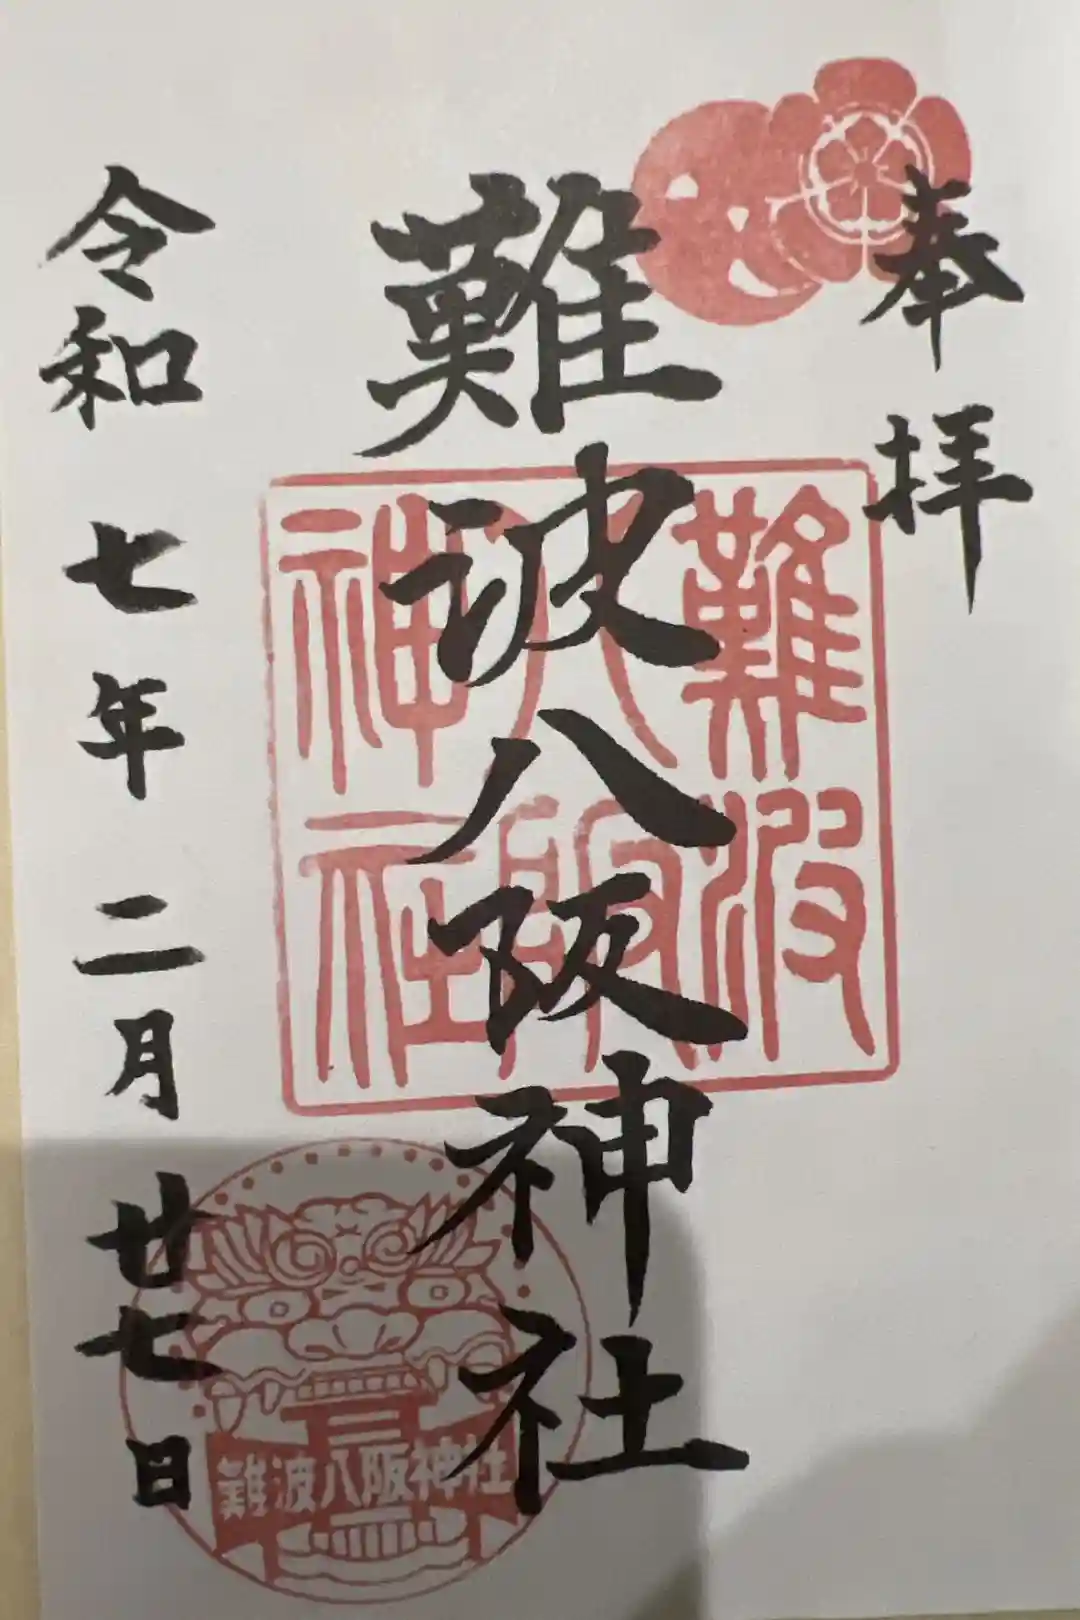 奉拝
難波八阪神社
難波
八阪
神社
令和七年二月廿七日
難波八阪神社